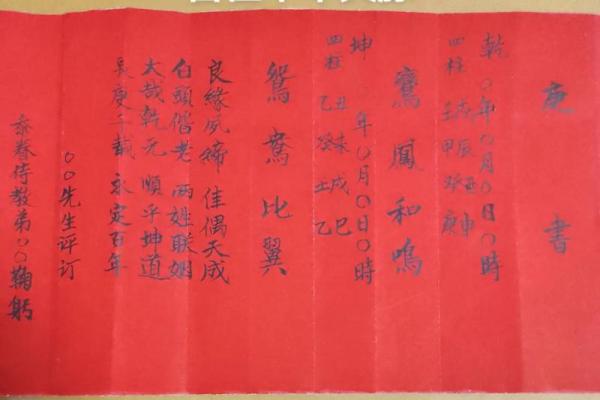 庚書
乾〇年〇月〇日〇時
四柱 壬戌 甲辰 癸酉 庚申
鸞鳳和鳴
坤〇年〇月〇日〇時
四柱 乙丑 癸未 壬戌 乙巳
鴛鴦比翼
良緣夙締 佳偶天成
白頭偕老 兩姓联姻
大哉乾元 順乎坤道
庚 載 永定百年
〇〇先生评订
忝眷侍教弟〇〇鞠躬